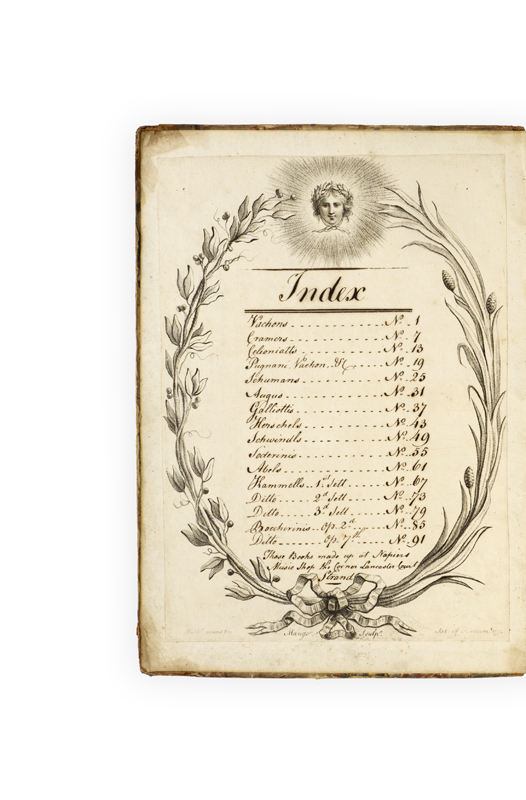 Index
Vachons . . . . . . . . . . . . . . . . Nº. 1
Cramers . . . . . . . . . . . . . . . Nº. 7
Celeoniatts . . . . . . . . . . . . . Nº. 13
Pugnani, Vachon, &c. . . . . . . Nº. 19
Schumans . . . . . . . . . . . . . . Nº. 25
Augus . . . . . . . . . . . . . . . . Nº. 31
Galliottis . . . . . . . . . . . . . . Nº. 37
Herschels . . . . . . . . . . . . . . Nº. 43
Schwindls . . . . . . . . . . . . . . Nº. 49
Soderinis . . . . . . . . . . . . . . Nº. 55
Abels . . . . . . . . . . . . . . . . Nº. 61
Kammells . . 1st Sett . . . . . . Nº. 67
Ditto . . . . . . 2d Sett . . . . . . Nº. 73
Ditto . . . . . . 3d Sett . . . . . . Nº. 79
Boccherinis . . . Op. 2d . . . . . Nº. 85
Ditto . . . . . . . Op. 7th . . . . . Nº. 91
These Books made up at Napiers
Music Shop the Corner Lancaster Court
Strand
Mango Sculpt.